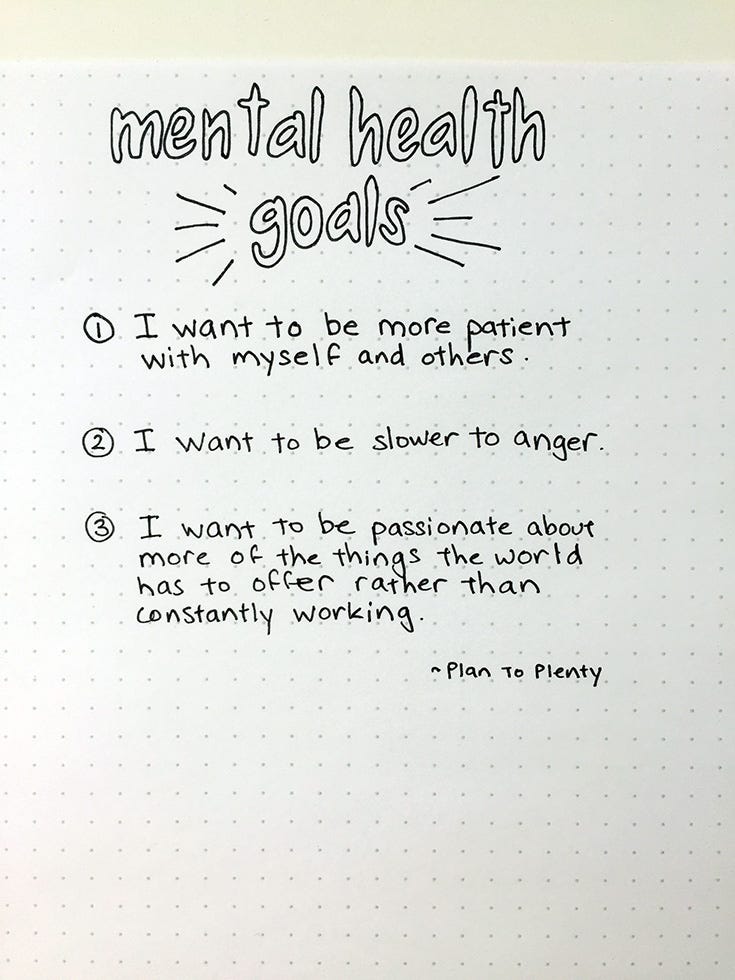 mental health
goals
① I want to be more patient
with myself and others.
② I want to be slower to anger.
③ I want to be passionate about
more of the things the world
has to offer rather than
constantly working.
~Plan To Plenty